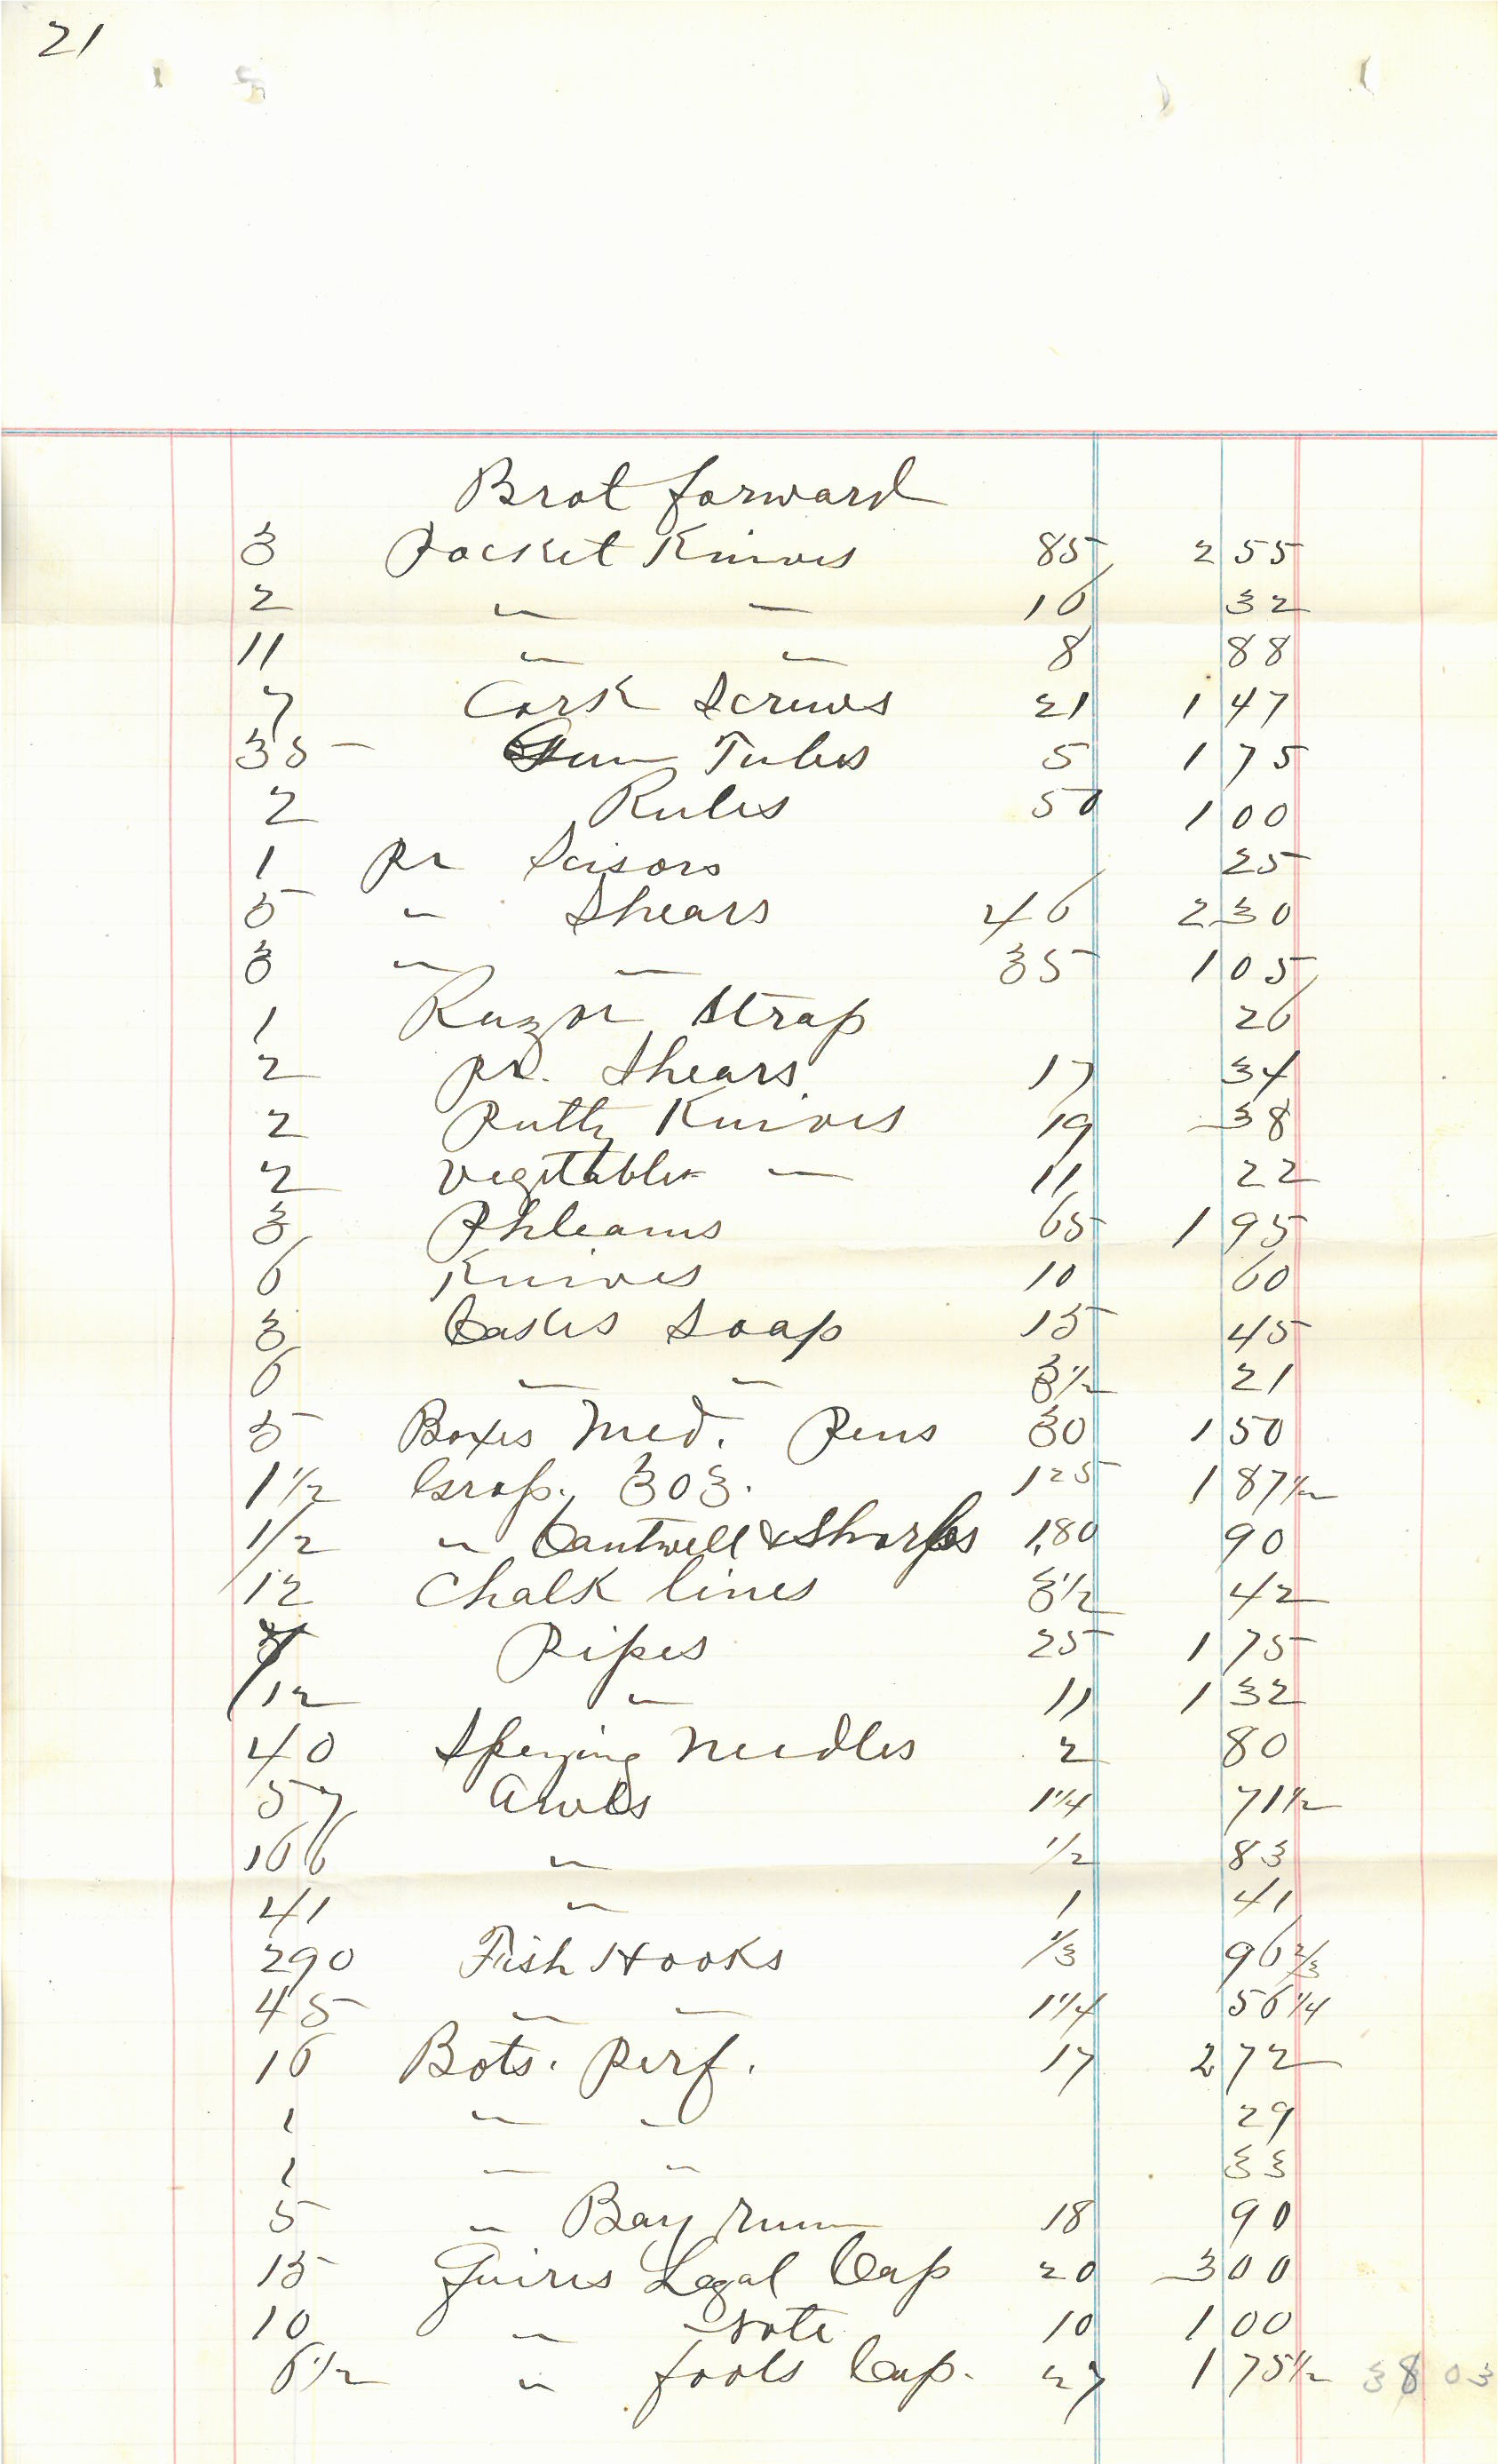 21
Brot forward
3 Pocket Knives 85 2 55
2 " " 16 32
11 " " 8 88
7 Cork Screws 21 1 47
35 Gun Tubes 5 1 75
2 Rules 50 1 00
1 pr Scisors 25
5 " Shears 46 2 30
3 " " 35 1 05
1 Razor Strap 26
2 pr. Shears 17 34
2 Putty Knives 19 38
2 Vegetable " 11 22
3 Phleams 65 1 95
6 Knives 10 60
3 Cakes Soap 15 45
6 " " 3½ 21
5 Boxes Med. Pens 30 1 50
1½ Gros. 303. 125 1 87½
1/2 " Cantwell & Sharps 1,80 90
12 Chalk lines 3½ 42
7 Pipes 25 1 75
12 " 11 1 32
40 Needles 2 80
57 Awls 1¼ 71½
166 " ½ 83
41 " 1 41
290 Fish Hooks ⅓ 96⅔
45 " " 1¼ 56¼
16 Bots. Perf. 17 2 72
1 " " 29
1 " " 33
5 " Bay rum 18 90
15 Quires Legal Cap 20 3 00
10 " Note 10 1 00
6½ " fools Cap. 27 1 75½ 38 03